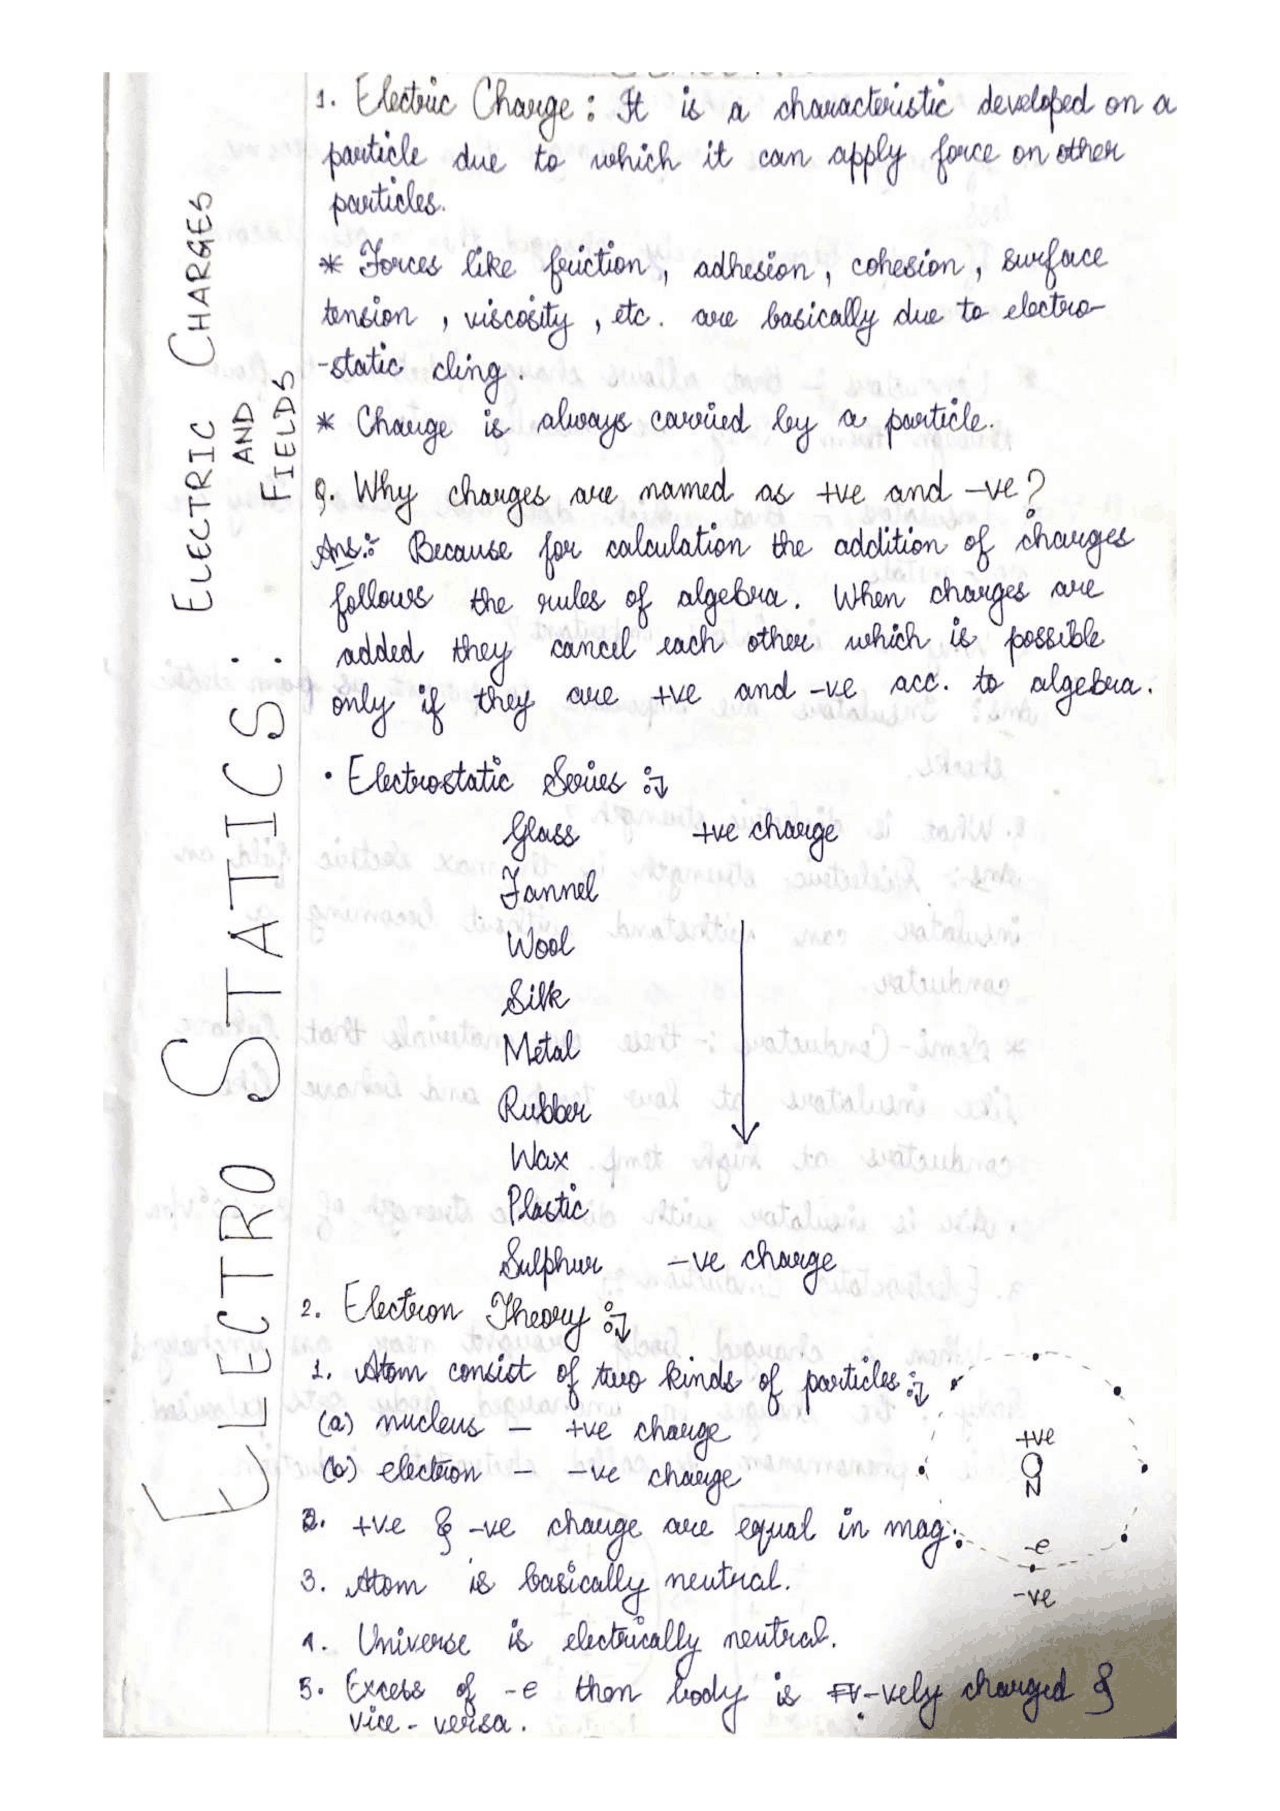 ELECTRO STATICS : ELECTRIC CHARGES
AND
FIELDS
1. Electric Charge : It is a characteristic developed on a
particle due to which it can apply force on other
particles.
* Forces like friction, adhesion, cohesion, surface
tension, viscosity, etc. are basically due to electro-
-static cling.
* Charge is always carried by a particle.
Q. Why charges are named as +ve and -ve?
Ans:- Because for calculation the addition of charges
follows the rules of algebra. When charges are
added they cancel each other which is possible
only if they are +ve and -ve acc. to algebra.
• Electrostatic Series :-
Glass +ve charge
Fannel
Wool
Silk
Metal
Rubber
Wax
Plastic
Sulphur -ve charge
2. Electron Theory :-
1. Atom consist of two kinds of particles :-
(a) nucleus - +ve charge
(b) electron - -ve charge
+ve
N
2. +ve & -ve charge are equal in mag.
-e
-ve
3. Atom is basically neutral.
4. Universe is electrically neutral.
5. Excess of -e then body is -vely charged &
vice-versa.